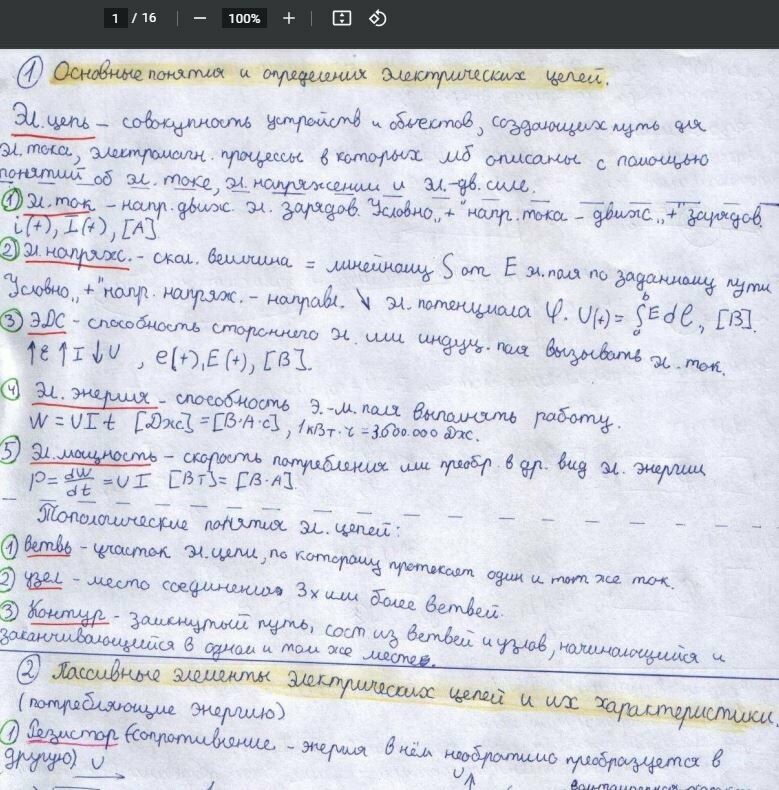 1 / 16 − 100% +
① Основные понятия и определения электрических цепей.
Эл. цепь – совокупность устройств и объектов, создающих путь для
эл. тока, электромагн. процессы в которых мб описаны с помощью
понятий об эл. токе, эл. напряжении и эл.-дв. силе.
① Эл. ток – напр. движ. эл. зарядов. Условно „+" напр. тока – движ. „+" зарядов.
i(t), I(t), [А]
② Эл. напряж. – скал. величина = линейному ∫ от E эл. поля по заданному пути
Условно „+" напр. напряж. – направл. ↘ эл. потенциала φ. U(t) = ∫ₐᵇ E dl, [В].
③ ЭДС – способность стороннего эл. или индуц. поля вызывать эл. ток.
↑ε ↑I ↓U , e(t), E(t), [В].
④ Эл. энергия – способность э.-м. поля выполнять работу.
W = UIt [Дж] = [В·А·с], 1 кВт·ч = 3.600.000 Дж.
⑤ Эл. мощность – скорость потребления или преобр. в др. вид эл. энергии
P = dW/dt = UI [Вт] = [В·А]
Топологические понятия эл. цепей:
① Ветвь – участок эл. цепи, по которому протекает один и тот же ток.
② Узел – место соединения 3х или более ветвей.
③ Контур – замкнутый путь, сост из ветвей и узлов, начинающийся и
заканчивающейся в одном и том же месте.
② Пассивные элементы электрических цепей и их характеристики.
(потребляющие энергию)
① Резистор (сопротивление – энергия в нём необратимо преобразуется в
другую) U
U